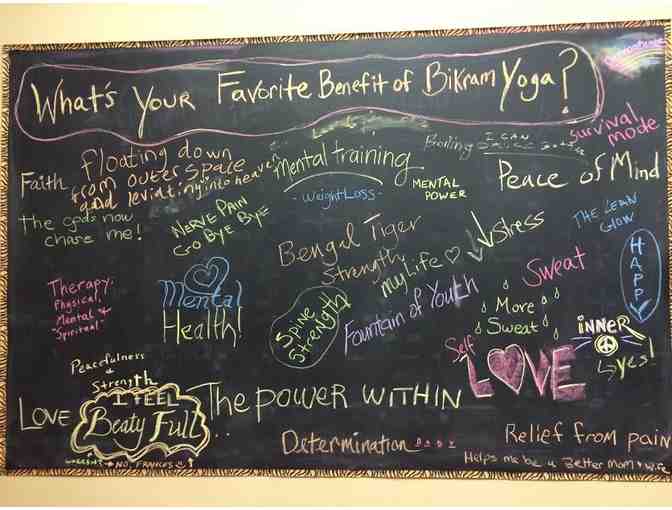 What's Your Favorite Benefit of Bikram Yoga?
survival
mode
Floating down
from outer space
and leviating into heaven
Faith
Mental training
I CAN
Peace of Mind
- WeightLoss -
MENTAL
POWER
The gods now
chase me!
NERVE PAIN
GO BYE BYE
Bengel Tiger
Strength
Stress
THE LEAN
GLOW
HAPPY
my Life
Sweat
Therapy:
Physical,
Mental &
"Spiritual"
Mental
Health!
Spine
Strength
Fountain of Youth
More
Sweat
INNER
Yes!
Self
LOVE
Peacefulness
Strength
LOVE
I FEEL
Beaty Full
The POWER WITHIN
Determination
Relief from pain
NO, FRANCES
Helps me be a Better mom +